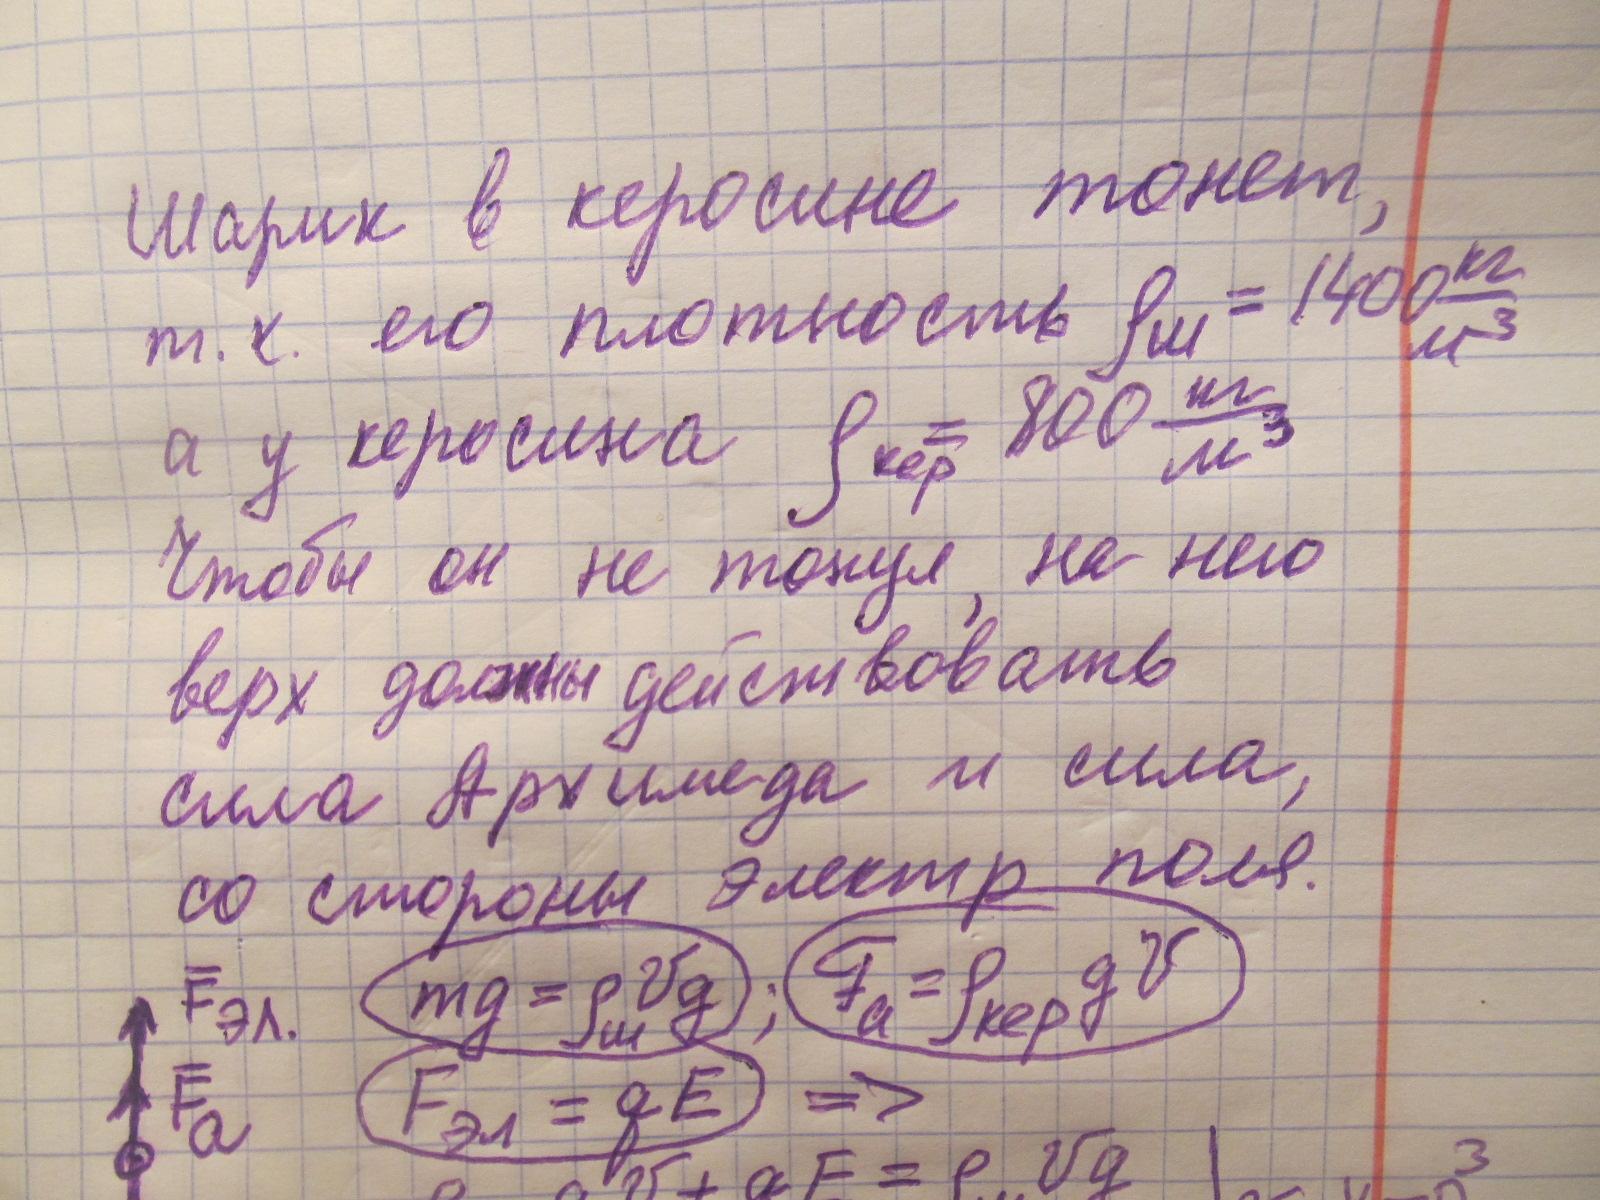 Шарик в керосине тонет,
т.к. его плотность ρш = 1400 кг/м³
а у керосина ρкер = 800 кг/м³
Чтобы он не тонул, на него
верх должны действовать
сила Архимеда и сила,
со стороны электр поля.
F̅эл. mg = ρш Vg ; Fа = ρкер gV
F̅а Fэл = qE =>
gV + qE = ρш Vg